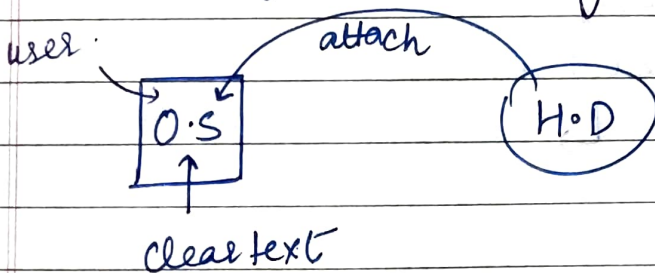 user.
attach
O.S
H.D
clear text